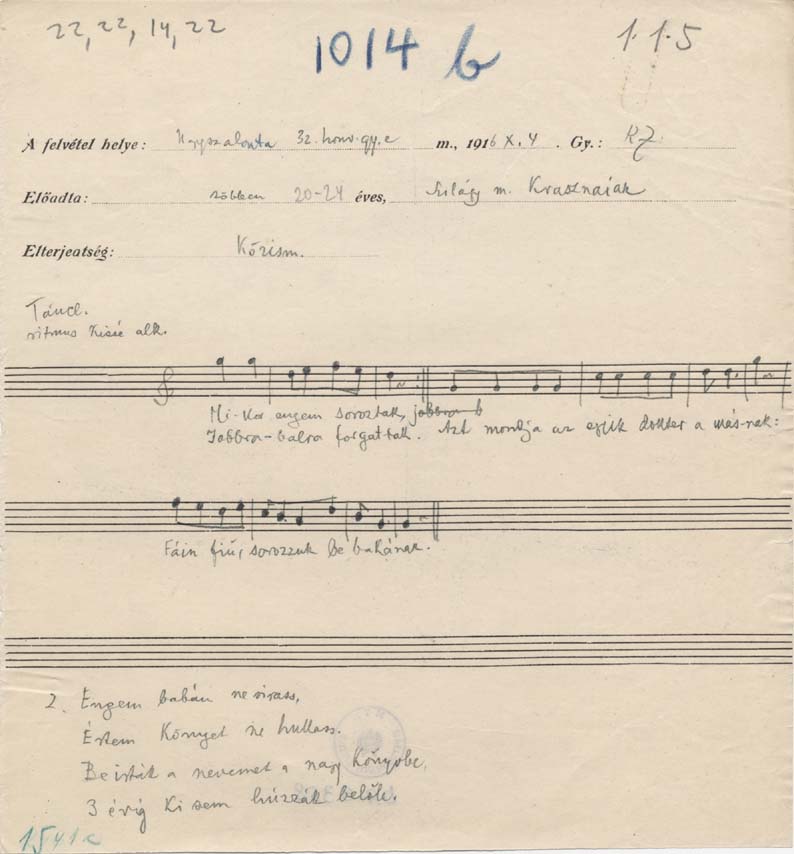 22, 22, 14, 22
1014 b
1·1·5
A felvétel helye: Nagyszalonta 32. honv. gy. e m., 1916 X. 4. Gy.: KZ
Előadta: többen 20-24 éves, Szilágy m. Krasznaiak
Elterjedtség: Közism.
Táncl.
ritmus kissé alk.
Mi-kor engem soroztak, jobbra b
Jobbra-balra forgattak. Azt mondja az egyik dokter a más-nak:
Fáin fiú, sorozzuk be bakának.
2. Engem babám ne sirass,
Értem könyet ne hullass.
Beirták a nevemet a nagy könyvbe,
3 évig ki sem húzzák belőle.
1541c